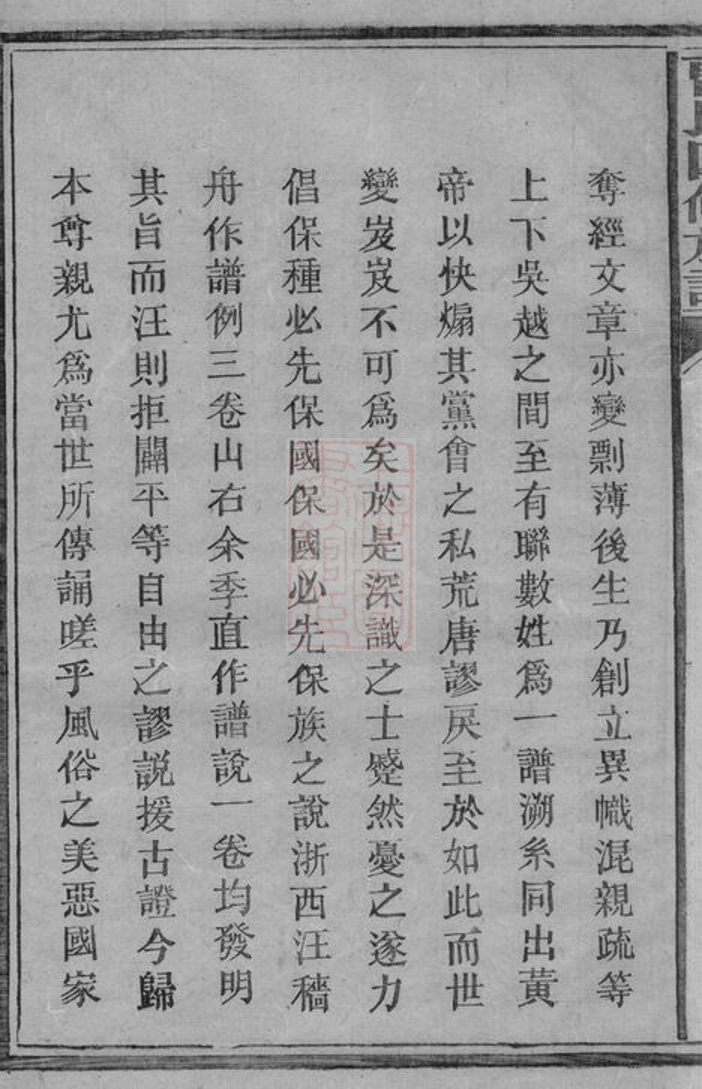 奪經文章亦變剽薄後生乃創立異幟混親疏等
上下吳越之間至有聯數姓爲一譜溯系同出黃
帝以快煽其黨會之私荒唐謬戾至於如此而世
變岌岌不可爲矣於是深識之士蹙然憂之遂力
倡保種必先保國保國必先保族之說浙西汪穡
舟作譜例三卷山右余季直作譜說一卷均發明
其旨而汪則拒闢平等自由之謬説援古證今歸
本尊親尤爲當世所傳誦嗟乎風俗之美惡國家